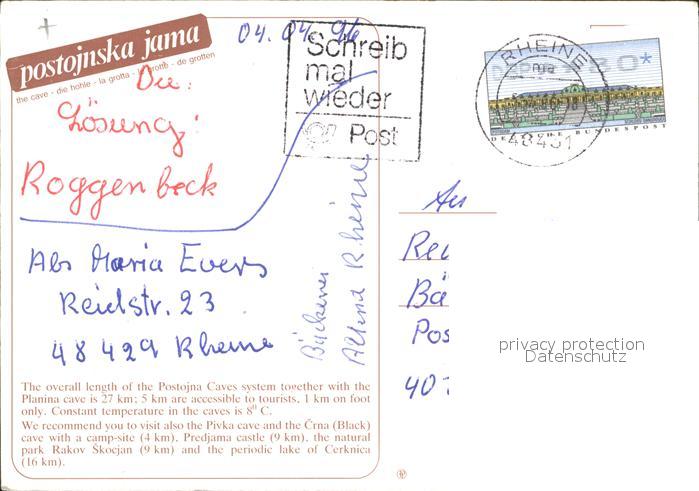 postojnska jama
the cave - die höhle - la grotta - la grotte - de grotten
04. 04. 96
Schreib
mal
wieder
Post
RHEINE
48431
DEUTSCHE BUNDESPOST
Die:
Lösung:
Roggenbeck
Abs Maria Evers
Reidstr. 23
48429 Rheine
Bäckerei
Rheine
An
Rei
Bä
Pos
40
privacy protection
Datenschutz
The overall length of the Postojna Caves system together with the
Planina cave is 27 km; 5 km are accessible to tourists, 1 km on foot
only. Constant temperature in the caves is 8⁰ C.
We recommend you to visit also the Pivka cave and the Črna (Black)
cave with a camp-site (4 km), Predjama castle (9 km), the natural
park Rakov Škocjan (9 km) and the periodic lake of Cerknica
(16 km).